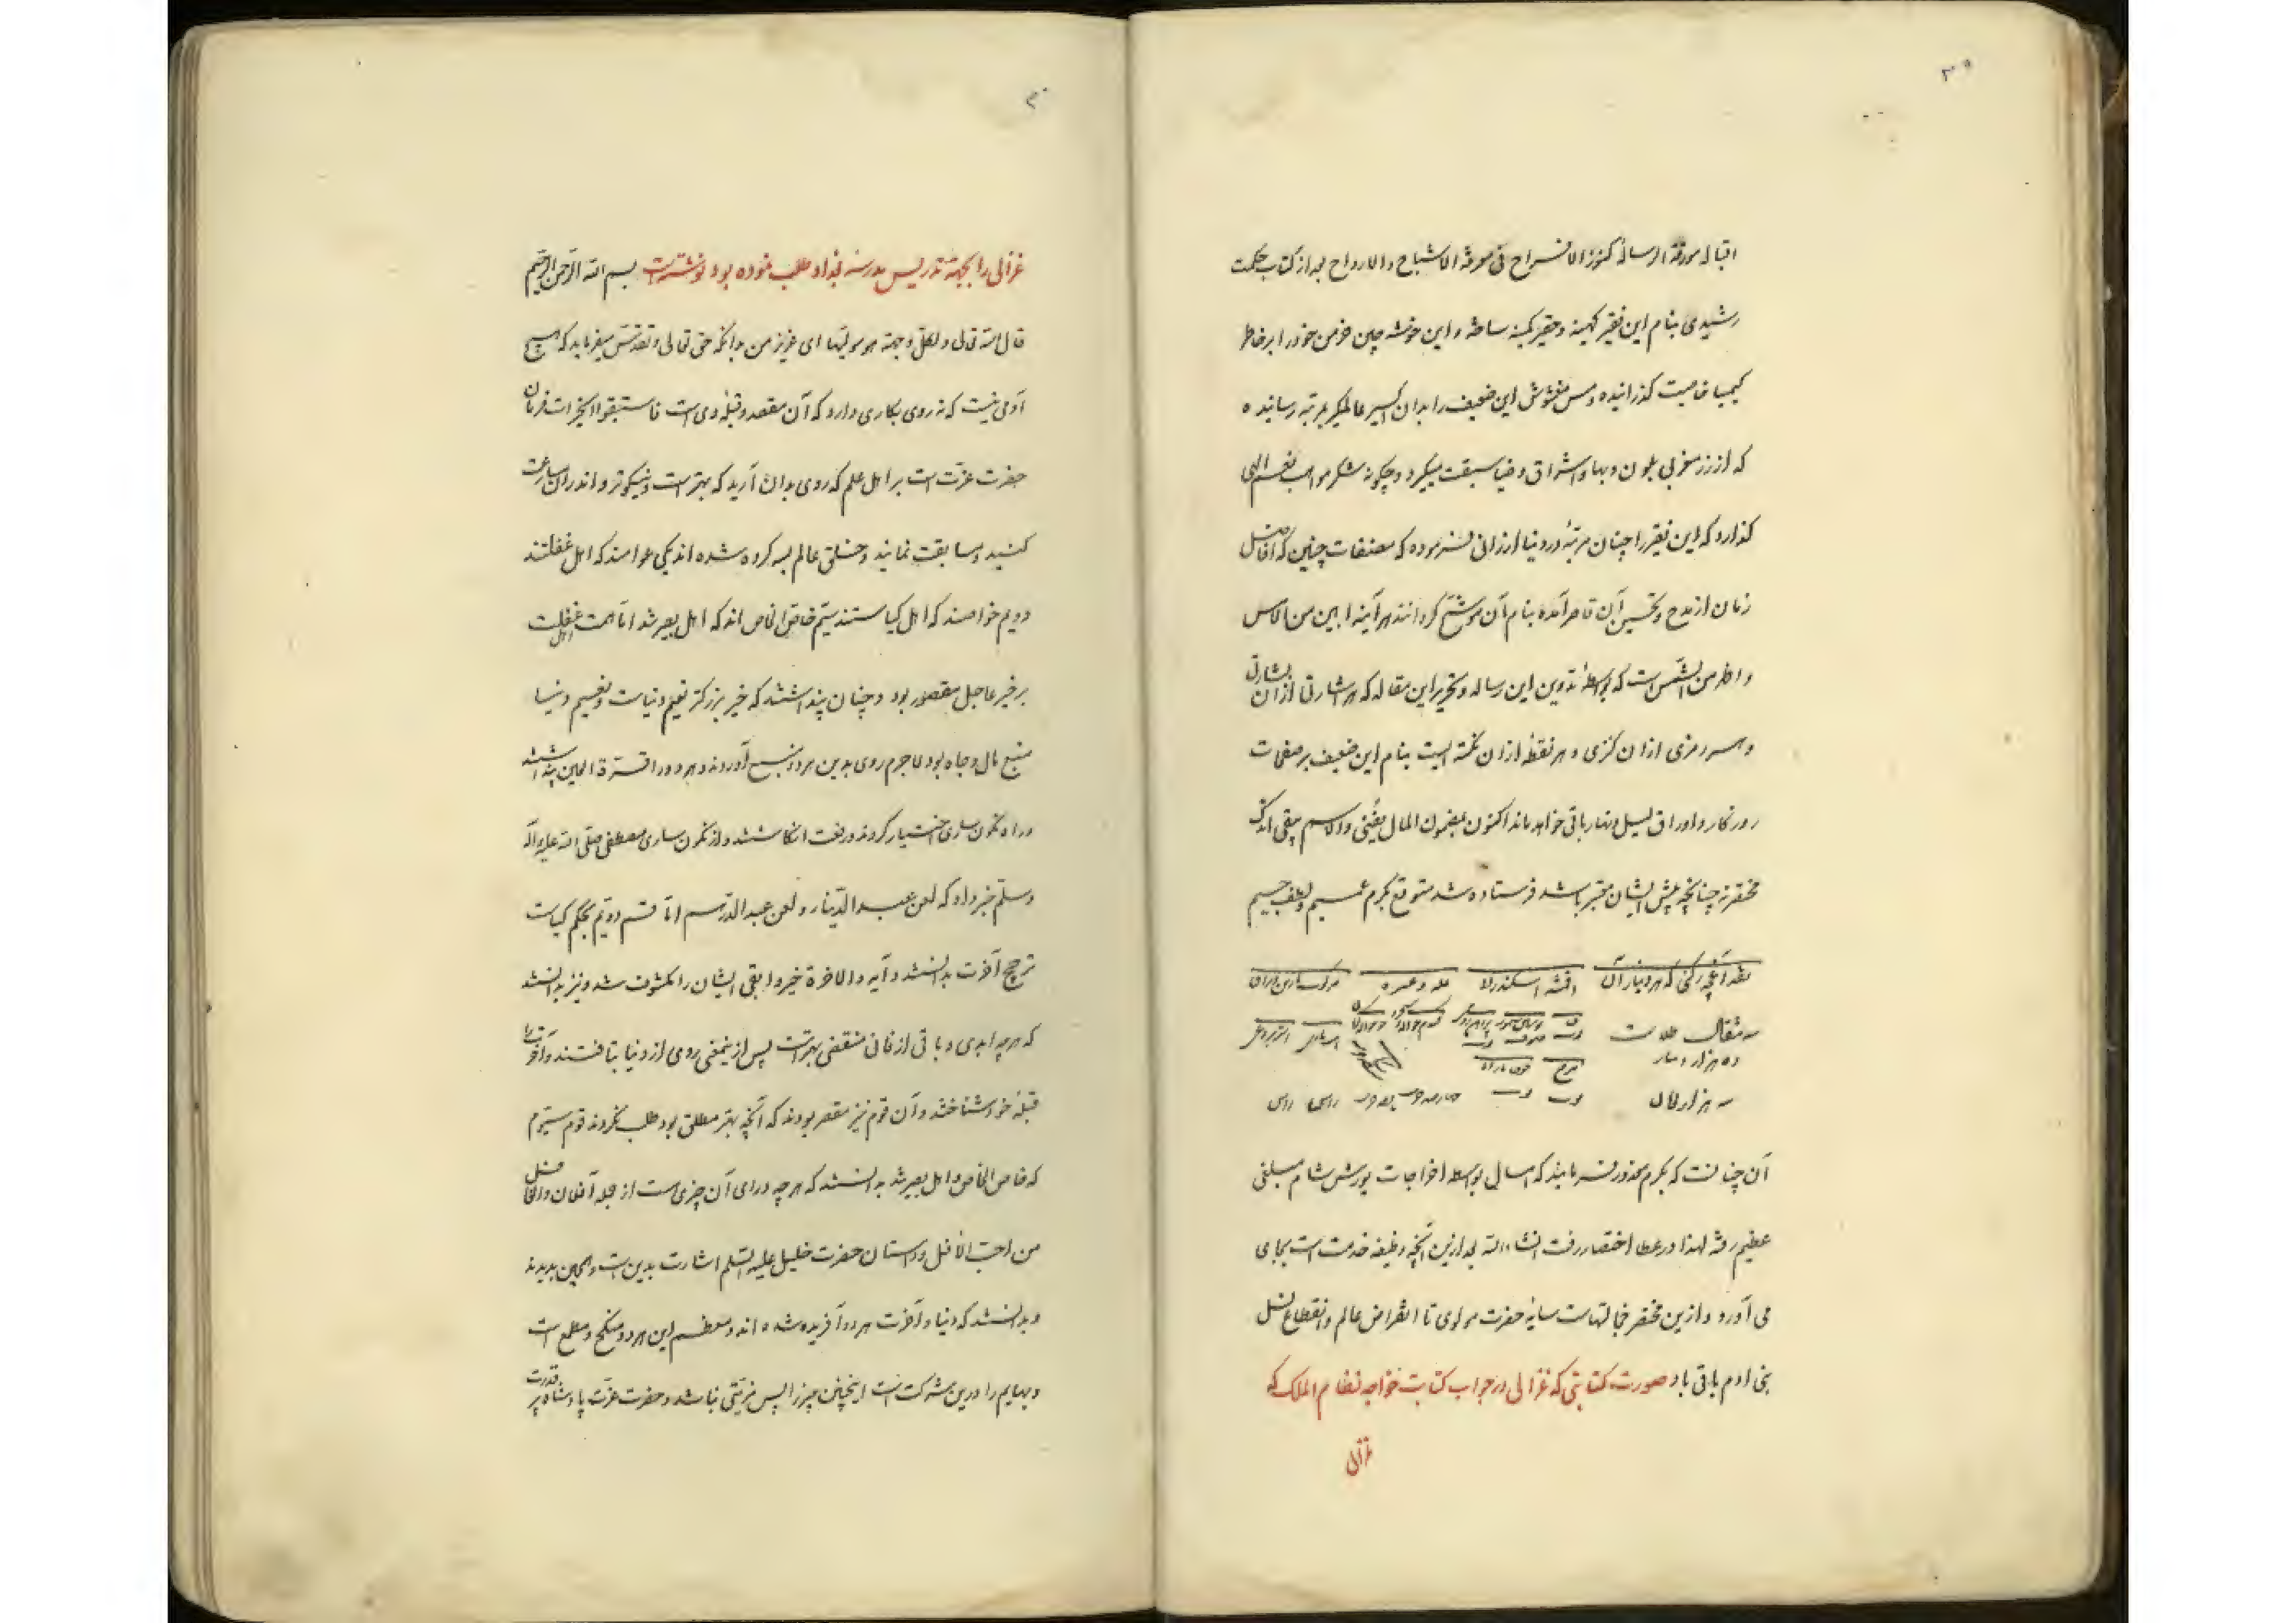 ۳۹
اقباله مورقة الرسالهٔ کنوز الافراح فی معرفة الاشباح والارواح بعد از کتاب حکمت
رشیدی بنام این فقیر کهینه و حقیر کمینه ساخته و این خوشه چین خرمن خود را بر خاطر
کیمیا خاصیت گذرانیده و مس مغشوش این ضعیف را بدان اکسیر عالمگیر بمرتبه رسانیده
که از زر مغربی بلون و بها و اشراق و ضیا سبقت میگیرد و چگونه شکر مواهب نعم الهی
گذارد که این فقیر را چنان مرتبهٔ در دنیا ارزانی فرموده که مصنفات چنین که افاضل
زمان از مدح و تحسین آن قاصر آمده بنام آن موشح گردانند هر آینه ابین من الامس
و اظهر من الشمس است که بواسطهٔ تدوین این رساله و تحریر این مقاله که هر اشارتی از آن بشارتی
و هر رمزی ازان کنزی و هر نقطهٔ ازان نکته ایست بنام این ضعیف بر صفحات
روزگار و اوراق لیل و نهار باقی خواهد ماند اکنون بمضمون المال یفنی والاسم یبقی اندک
محقرّی چنانچه پیش ایشان محقر باشد فرستاده شد متوقع بکرم عمیم و لطف جسیم
نقد آنچه رکنی که هر دینار آن اقمشه اسکندرانی
سه مثقال طلاست
ده هزار دینار
سه هزار مثقال
راس راس
آن چنانست که بکرم معذور فرمایند که امسال بواسطه اخراجات یورش شام مبلغی
عظیم رفته لهذا در عطا اختصار رفت انشاء الله بعد ازین آنچه وظیفه خدمت است بجای
می آورد و ازین محقر خجالتهاست سایهٔ حضرت مولوی تا انقراض عالم و انقطاع نسل
بنی ادم باقی باد صورت کتابتی که غزالی در جواب کتابت خواجه نظام الملک که
غزالی
۴۰
غزالی را بجهة تدریس مدرسه بغداد طلب نموده بود نوشته است بسم الله الرحمن الرحیم
قال الله تعالی ولکل وجهة هو مولیها ای عزیز من بدانکه حق تعالی و تقدس میفرماید که هیچ
آدمی نیست که نه روی بکاری دارد که آن مقصد و قبلهٔ وی است فاستبقوا الخیرات فرمان
حضرت عزّت است بر اهل علم که روی بدان آرید که بهتر است و نیکوتر و اندران مسارعت
کنید و مسابقت نمایند و خلق عالم بسه کرده شده اند یکی عوامند که اهل غفلتند
دویم خواصند که اهل کیاستند سیّم خاص الخاص اند که اهل بصیرتند اما همت اهل غفلت
بر خیر عاجل مقصور بود و چنان پنداشتند که خیر بزرگتر نعیم دنیاست و نعیم دنیا
منبع مال و جاه بود لاجرم روی بدین هر دو منبع آوردند و هر دو را قرة العین پنداشتند
و راه نگون ساری اختیار کردند و رفعت انگاشتند و از نگون ساری مصطفی صلی الله علیه وآله
وسلّم خبر داد که لعن عبد الدّینار و لعن عبد الدّرهم امّا قسم دویّم بحکم کیاست
ترجیح آخرت بدانستند و آیه والاخرة خیر وابقی ایشان را مکشوف شد و نیز بدانستند
که هر چه ابدی و باقی از فانی منقضی بهتر است پس از ینمعنی روی از دنیا بتافتند و آخرت را
قبلهٔ خود شناختند و آن قوم نیز مقصر بودند که آنچه بهتر مطلق بود طلب نکردند قوم سیّوم
که خاص الخاص و اهل بصیرتند بدانستند که هر چه ورای آن چیزی است از جمله آفلان والعاقل
من احب الافل و داستان حضرت خلیل علیه السّلم اشارت بدین است و همچنین بدیدند
و بدانستند که دنیا و آخرت هر دو آفریده شده اند و معظم این هر دو منکح و مطعم است
و بهایم را درین مشرکت است اینچنین چیز را پس مزیّتی نباشد و حضرت عزّت پادشاه پر قدرت